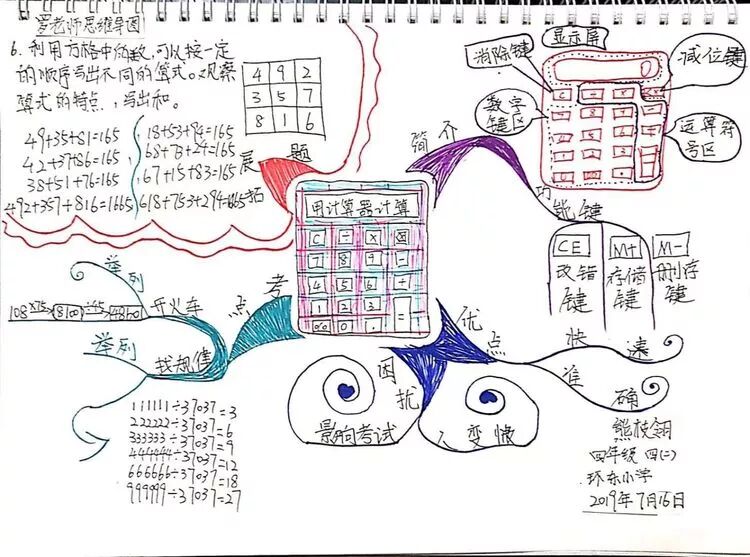 罗老师思维导图
6. 利用方格中的数,可以按一定
的顺序写出不同的算式。观察
算式的特点,写出和。
4 9 2
3 5 7
8 1 6
49+35+81=165
42+37+86=165
38+51+76=165
492+357+816=1665
18+53+94=165
68+73+24=165
67+15+83=165
618+753+294=1665
拓展题
简介
消除键
显示屏
0
减位键
数字
键区
运算符
号区
功能键
CE
改错
键
M+
存储
键
M-
删存
键
用计算器计算
C ÷ × 
7 8 9 -
4 5 6 +
1 2 3 =
% 0 .
考点
开火车
举例
108 ×75 8100 ÷45
找规律
举例
111111÷37037=3
222222÷37037=6
333333÷37037=9
444444÷37037=12
666666÷37037=18
999999÷37037=27
优点
快速
准确
困扰
影响考试
人变懒
熊枝翎
四年级 四(二)
环东小学
2019年7月16日